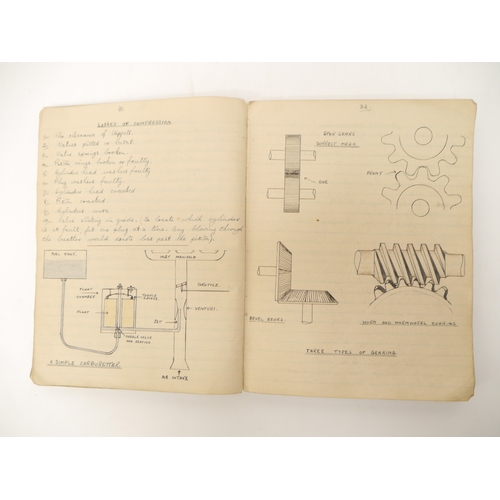 LOSSES OF COMPRESSION
1. No clearance of tappets.
2. Valves pitted or burnt.
3. Valve springs broken.
4. Piston rings broken or faulty.
5. Cylinder head washers faulty
6. Plug washers faulty.
7. Cylinder head cracked
8. Piston cracked.
9. Cylinders worn.
10. Valve sticking in guide. (To locate which cylinder
is at fault, fit one plug at a time. Any blowing through
the
would
past the
FUEL TANK.
INLET MANIFOLD
FLOAT
CHAMBER
NEEDLE
THROTTLE.
FLOAT
VENTURI.
JET
NEEDLE VALVE
AND SEATING
AIR INTAKE
A SIMPLE CARBURETTER.
22.
SPUR GEARS
FRONT
BEVEL GEARS.
WORM AND WORMWHEEL GEARING.
THREE TYPES OF GEARING